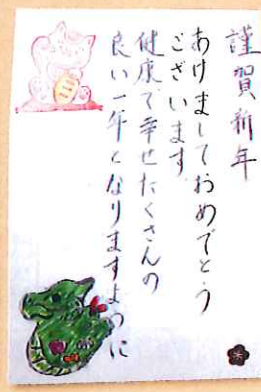 謹賀新年
あけましておめでとう
ございます
健康で幸せたくさんの
良い一年となりますように